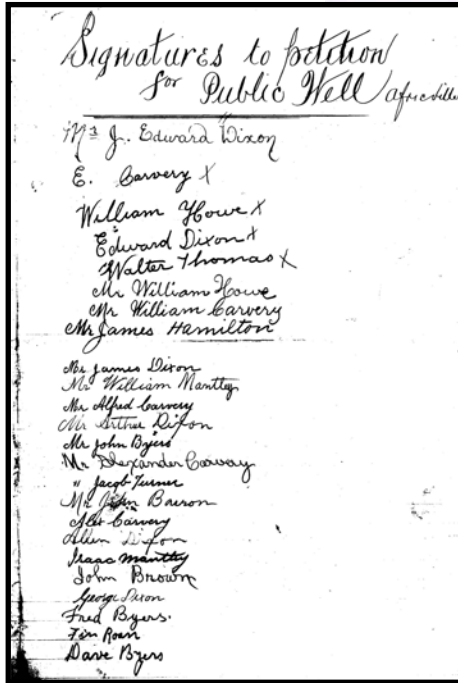 Signatures to petition
for Public Well Africville
Mr J. Edward Dixon
E. Carvery X
William Howe X
Edward Dixon X
Walter Thomas X
Mr William Howe
Mr William Carvery
Mr James Hamilton
Mr James Dixon
Mr William Mantley
Mr Alfred Carvery
Mr Arthur Dixon
Mr John Byers
Mr Alexander Carvery
" Jacob Turner
Mr John
Alex Carvery
Allen Dixon
Isaac Mantley
John Brown
George Dixon
Fred Byers.
Tim
Dave Byers